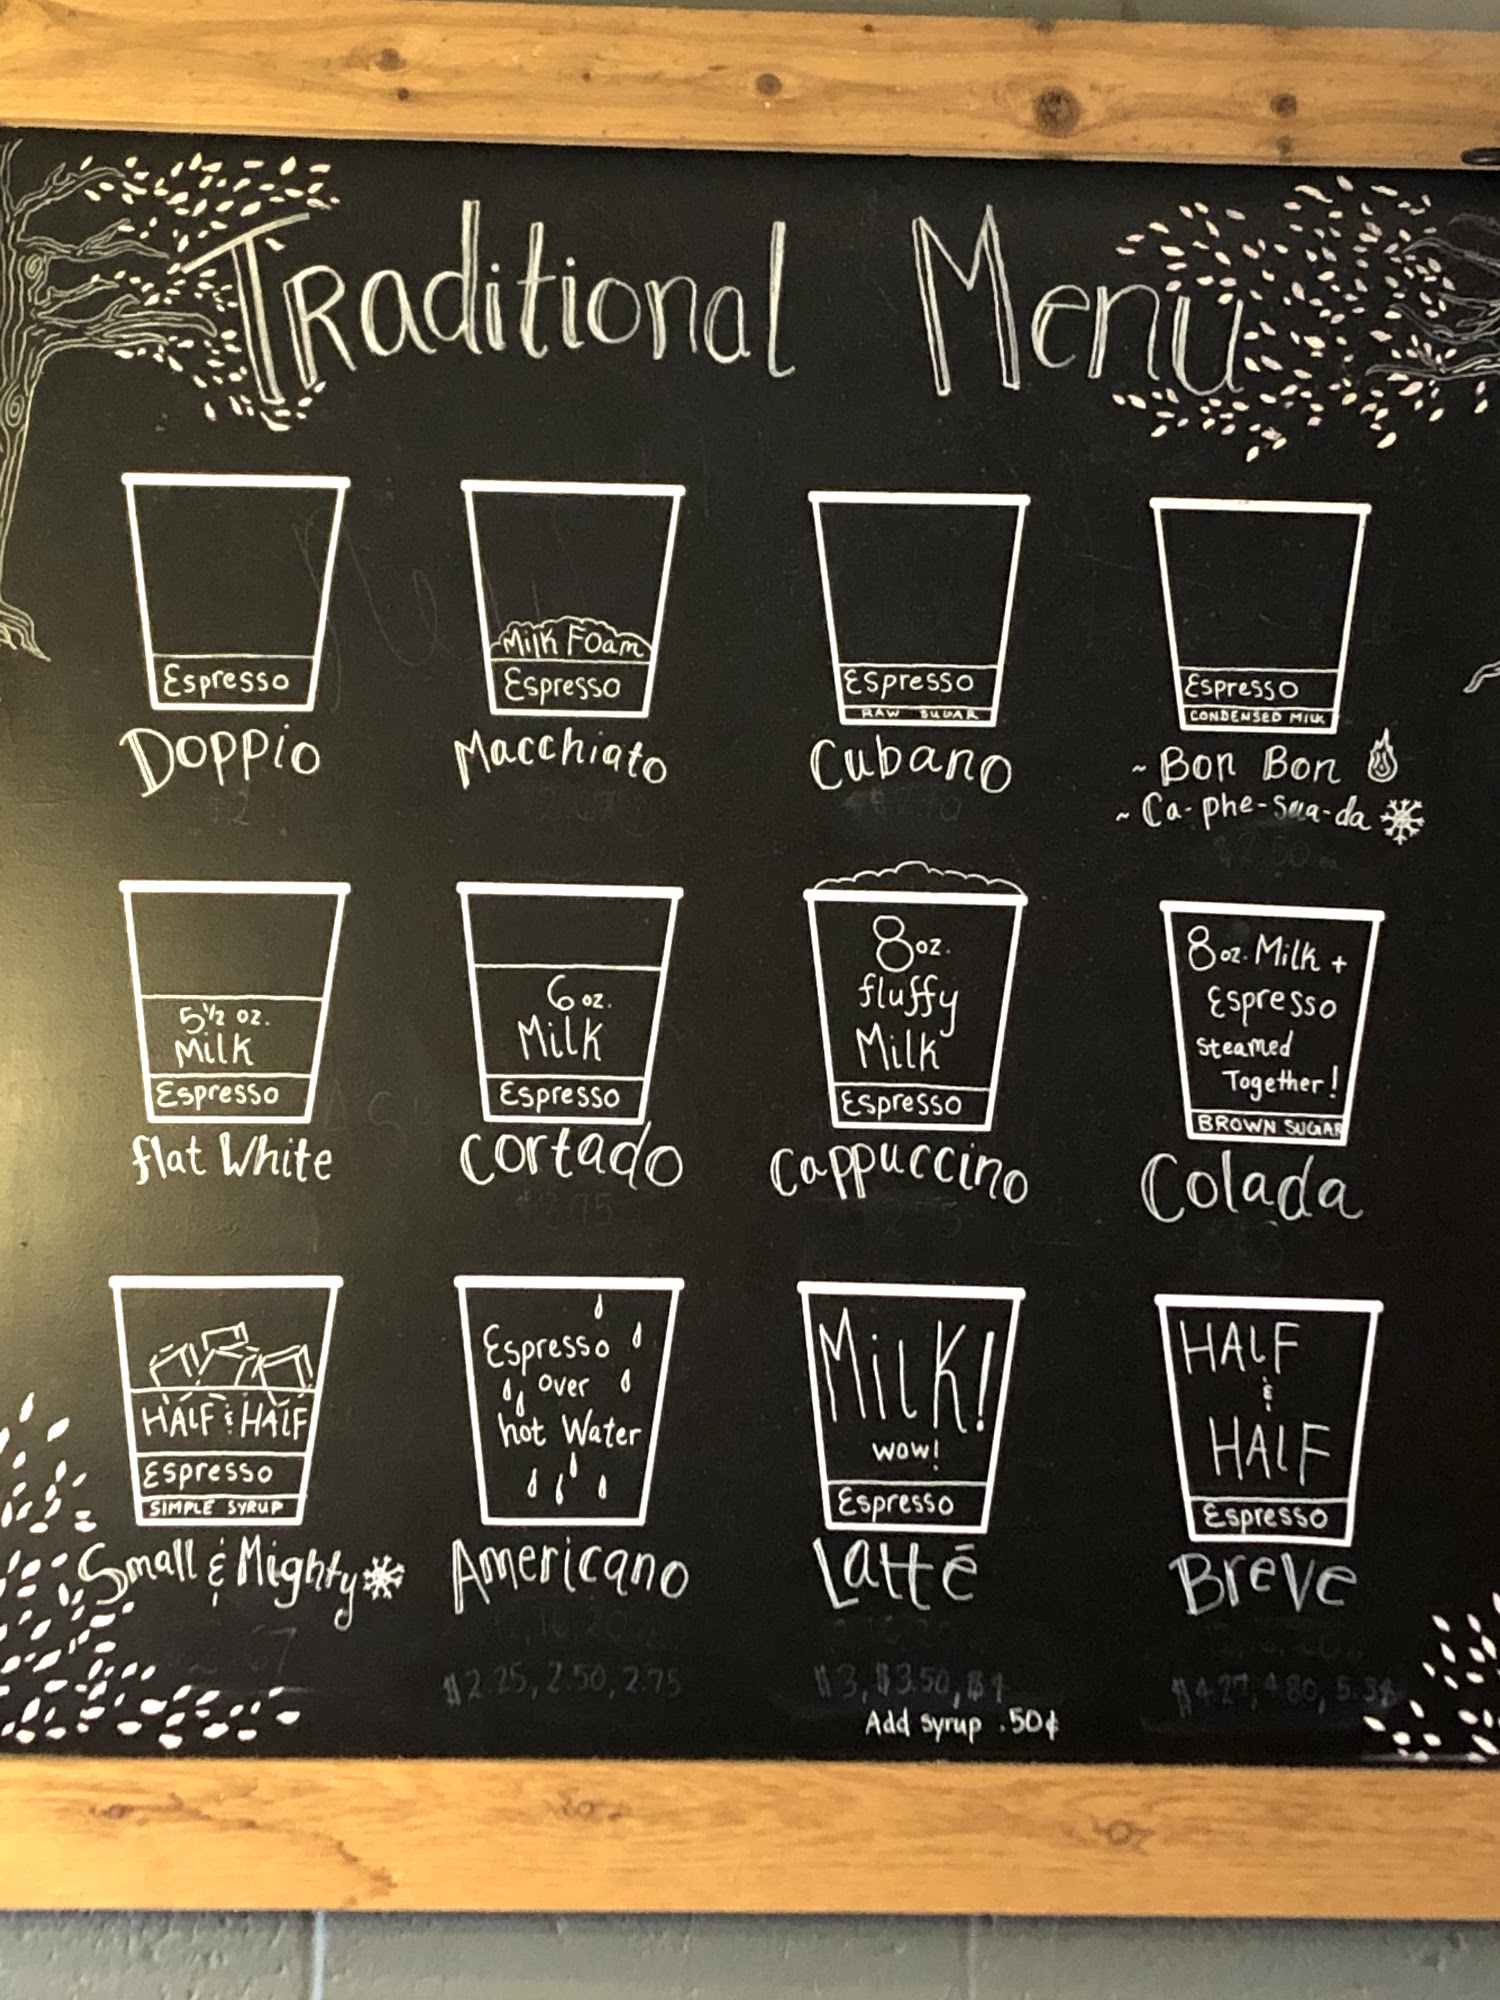 Traditional Menu
Espresso
Doppio
Milk Foam
Espresso
Macchiato
Espresso
RAW SUGAR
Cubano
Espresso
CONDENSED MILK
~ Bon Bon
~ Ca-phe-sua-da
5 1/2 oz.
Milk
Espresso
flat White
6 oz.
Milk
Espresso
Cortado
8 oz.
fluffy
Milk
Espresso
Cappuccino
8 oz. Milk +
Espresso
steamed
Together!
BROWN SUGAR
Colada
HALF & HALF
Espresso
SIMPLE SYRUP
Small & Mighty
Espresso
over
hot Water
Americano
$2.25, 2.50, 2.75
MilK!
wow!
Espresso
Latté
$3, $3.50, $4
Add syrup .50¢
HALF
&
HALF
Espresso
Breve